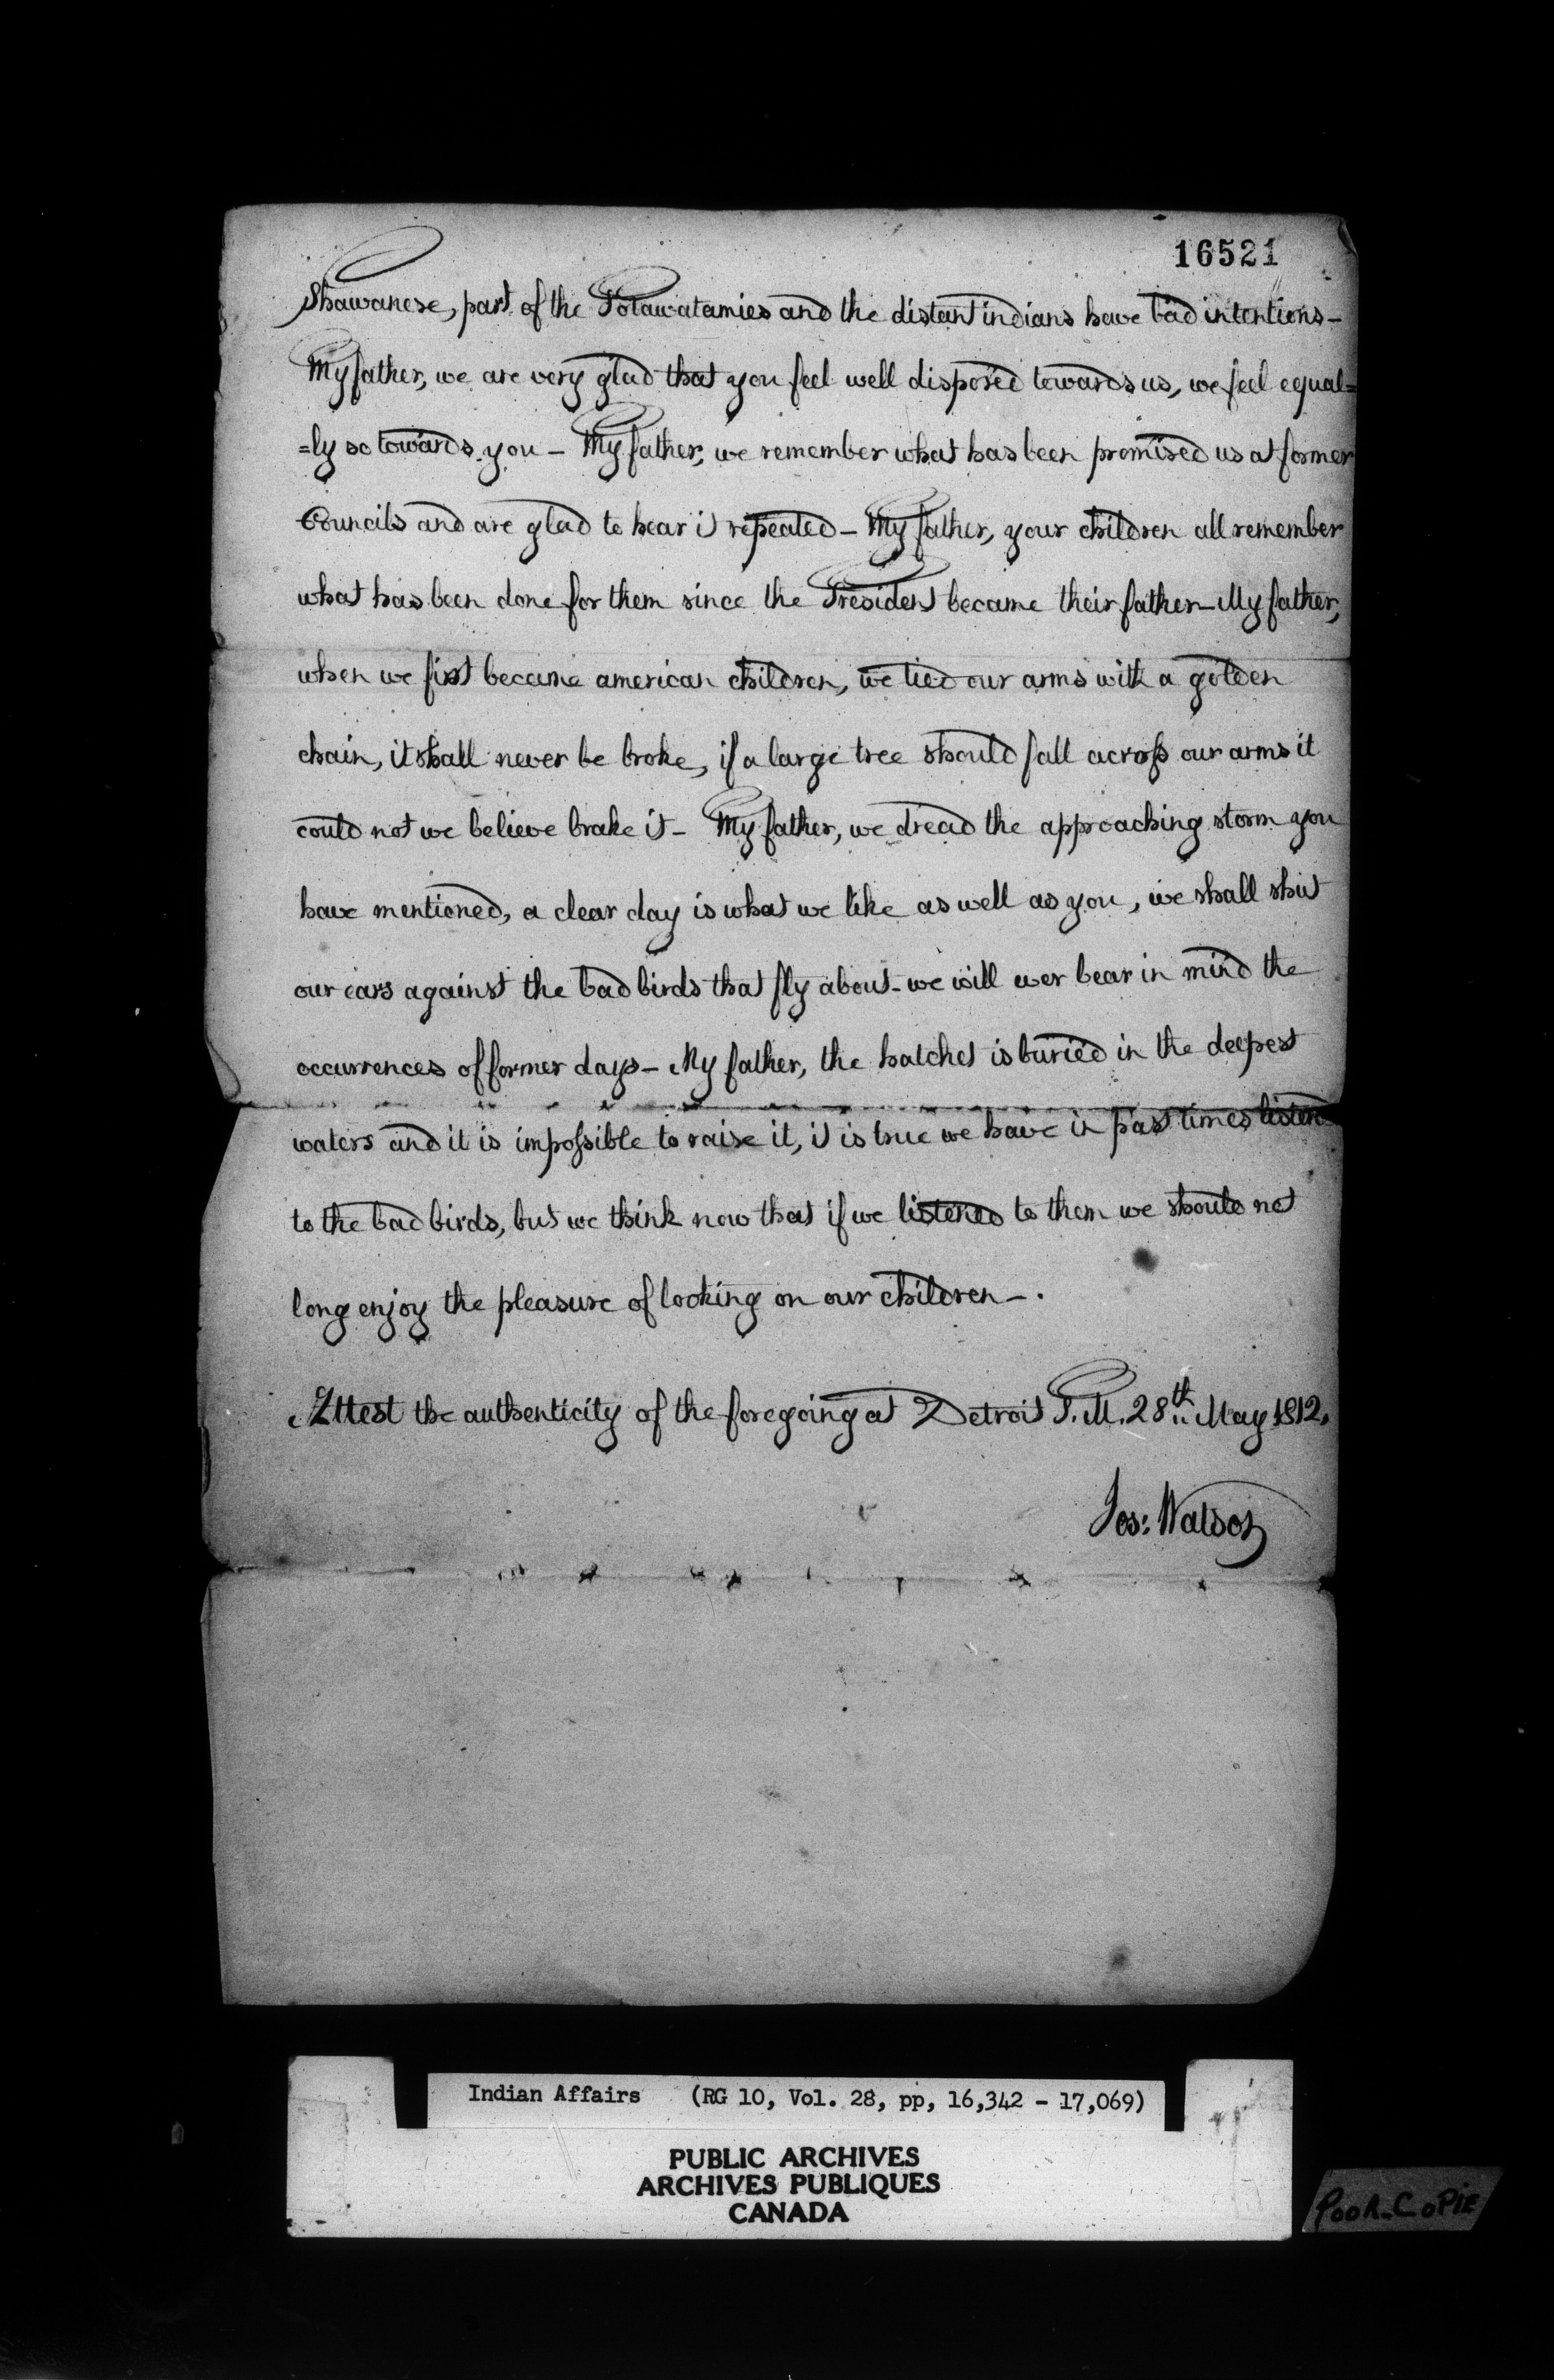 16521
Shawanese, part of the Potawatamies and the distant indians have bad intentions –
My father, we are very glad that you feel well disposed towards us, we feel equal=
=ly so towards you – My father, we remember what has been promised us at former
Councils and are glad to hear it repeated – My father, your children all remember
what has been done for them since the President became their father – My father,
when we first became american children, we tied our arms with a golden
chain, it shall never be broke, if a large tree should fall across our arms it
could not we believe brake it – My father, we dread the approaching storm you
have mentioned, a clear day is what we like as well as you, we shall shut
our ears against the bad birds that fly about – we will ever bear in mind the
occurrences of former days – My father, the hatchet is buried in the deepest
waters and it is impossible to raise it, it is true we have in past times listend
to the bad birds, but we think now that if we listened to them we should not
long enjoy the pleasure of looking on our children – .
Attest the authenticity of the foregoing at Detroit T. M. 28th May 1812,
Jos: Watson
Indian Affairs (RG 10, Vol. 28, pp, 16,342 - 17,069)
PUBLIC ARCHIVES
ARCHIVES PUBLIQUES
CANADA
POOR-COPIE